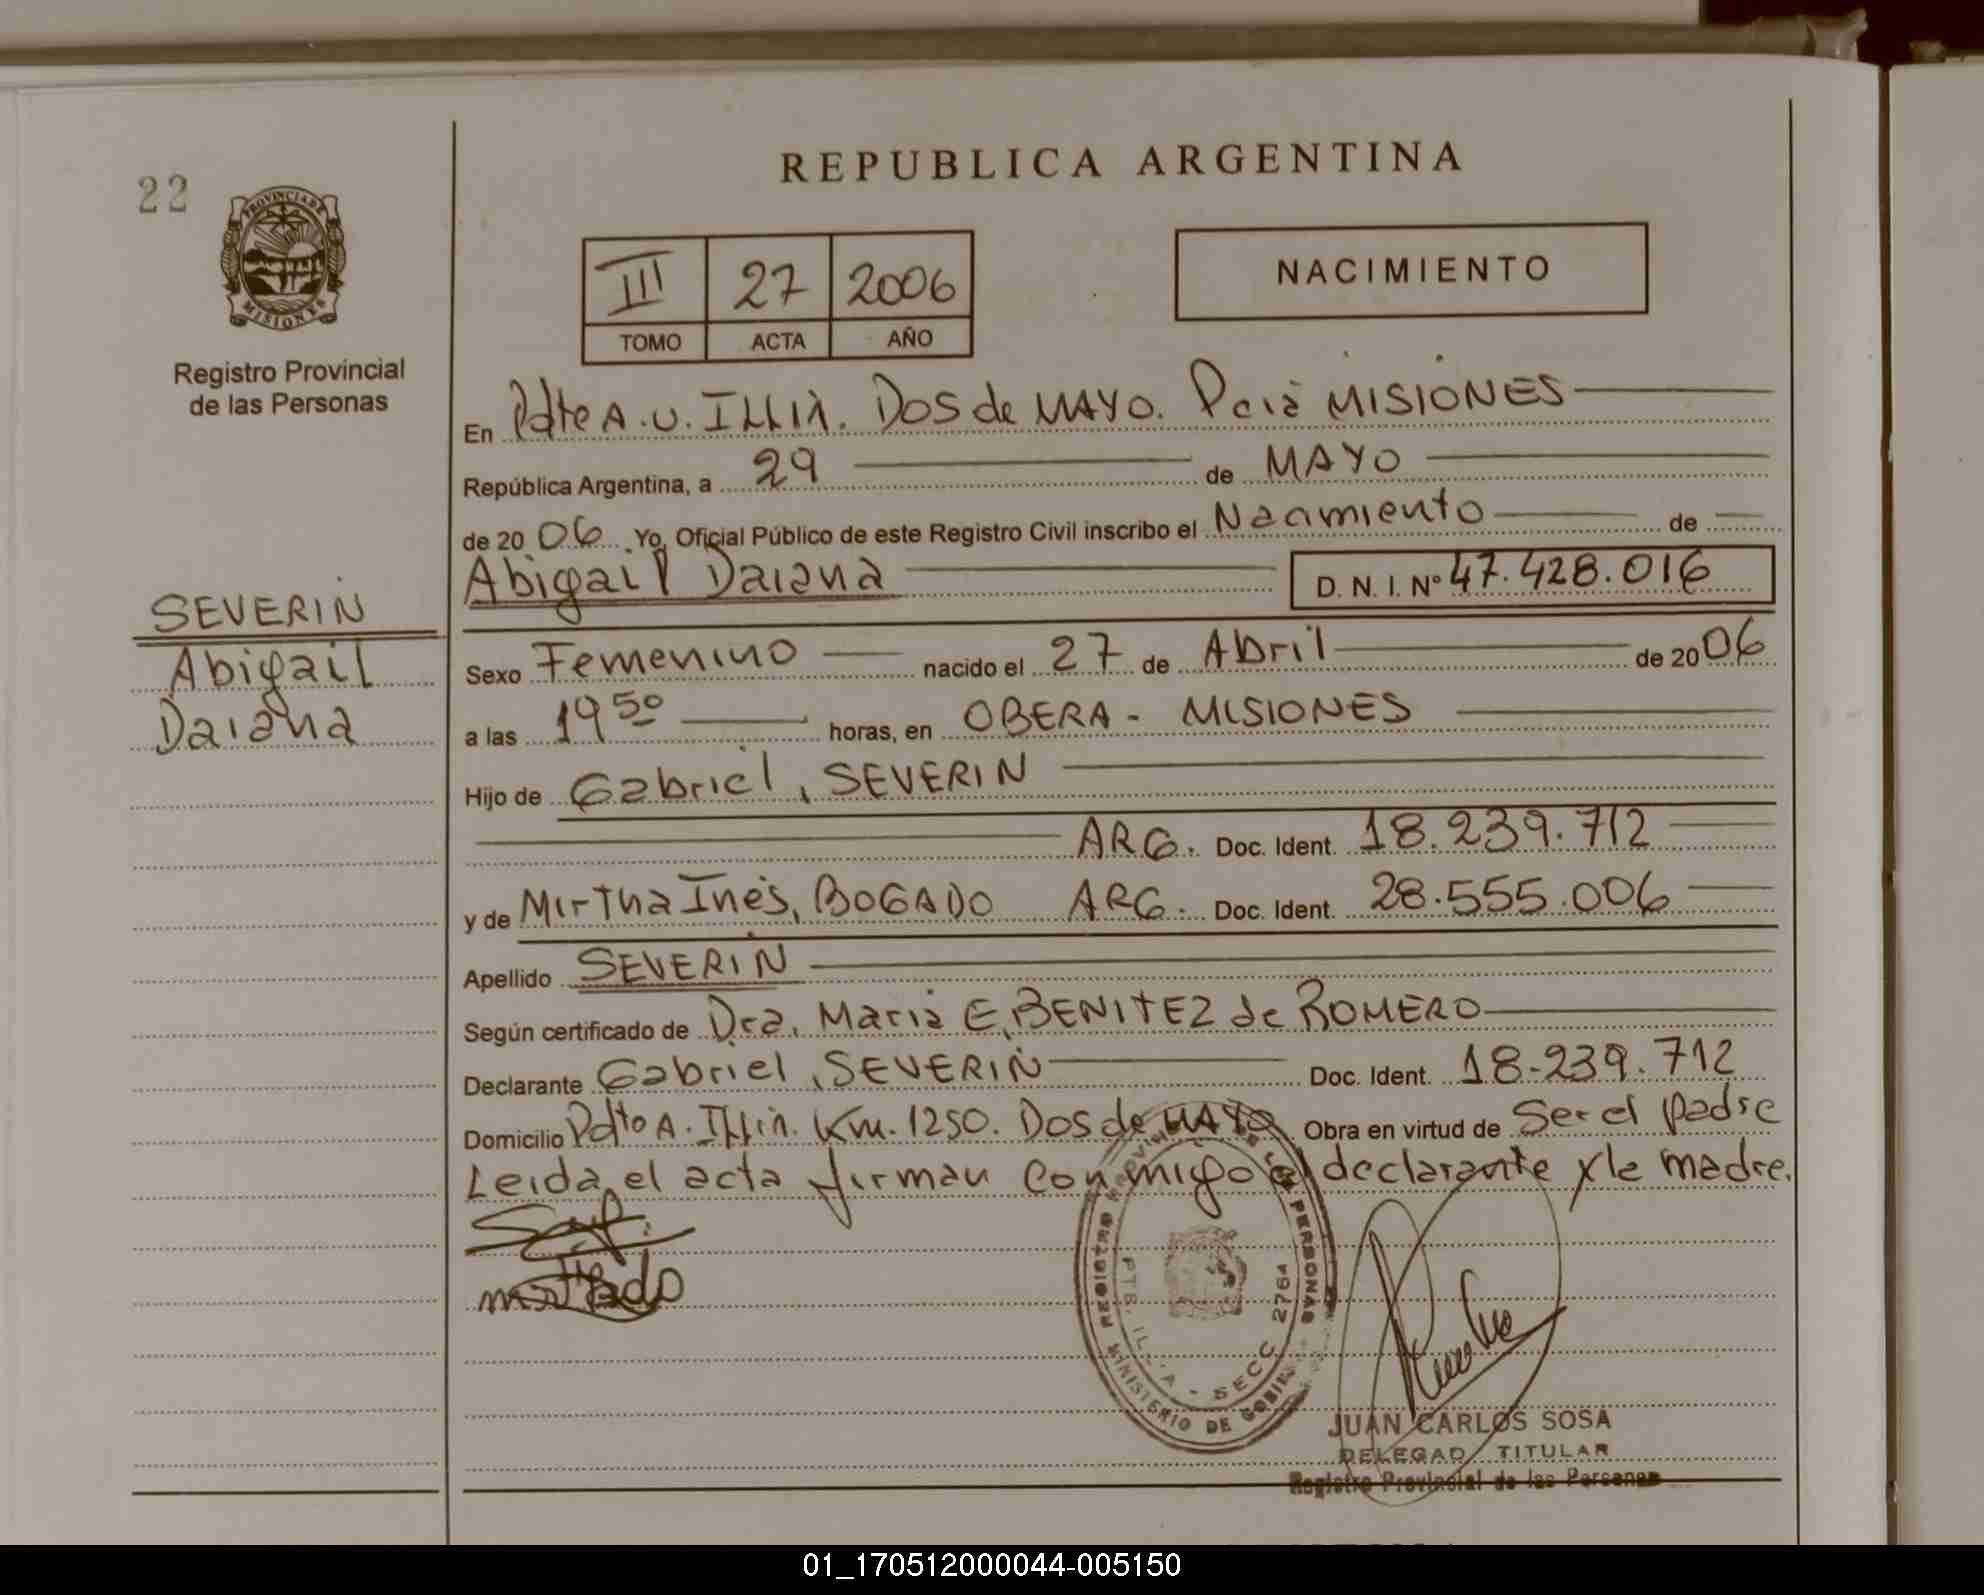 22
PROVINCIA DE
MISIONES
Registro Provincial
de las Personas
SEVERIN
Abigail
Daiana
REPUBLICA ARGENTINA
III 27 2006
TOMO ACTA AÑO
NACIMIENTO
En Pdte A. U. ILLIA. DOS de MAYO. Pcia MISIONES
República Argentina, a 29 de MAYO
de 20 06 Yo, Oficial Público de este Registro Civil inscribo el Nacimiento de
Abigail Daiana D. N. I. Nº 47.428.016
Sexo Femenino nacido el 27 de Abril de 20 06
a las 19 50 horas, en OBERA - MISIONES
Hijo de Gabriel, SEVERIN
ARG. Doc. Ident. 18.239.712
y de Mirtha Inés, BOGADO ARG. Doc. Ident. 28.555.006
Apellido SEVERIN
Según certificado de Dra. Maria E. BENITEZ de ROMERO
Declarante Gabriel, SEVERIN Doc. Ident. 18-239.712
Domicilio Pdte A. Illia. Km. 1250. Dos de MAYO Obra en virtud de Ser el padre
Leida el acta firman conmigo el declarante y la madre.
REGISTRO PROVINCIAL DE LAS PERSONAS
SECC 2764
MINISTERIO DE GOBIE
JUAN CARLOS SOSA
DELEGADO TITULAR
Registro Provincial de las Personas
01_170512000044-005150